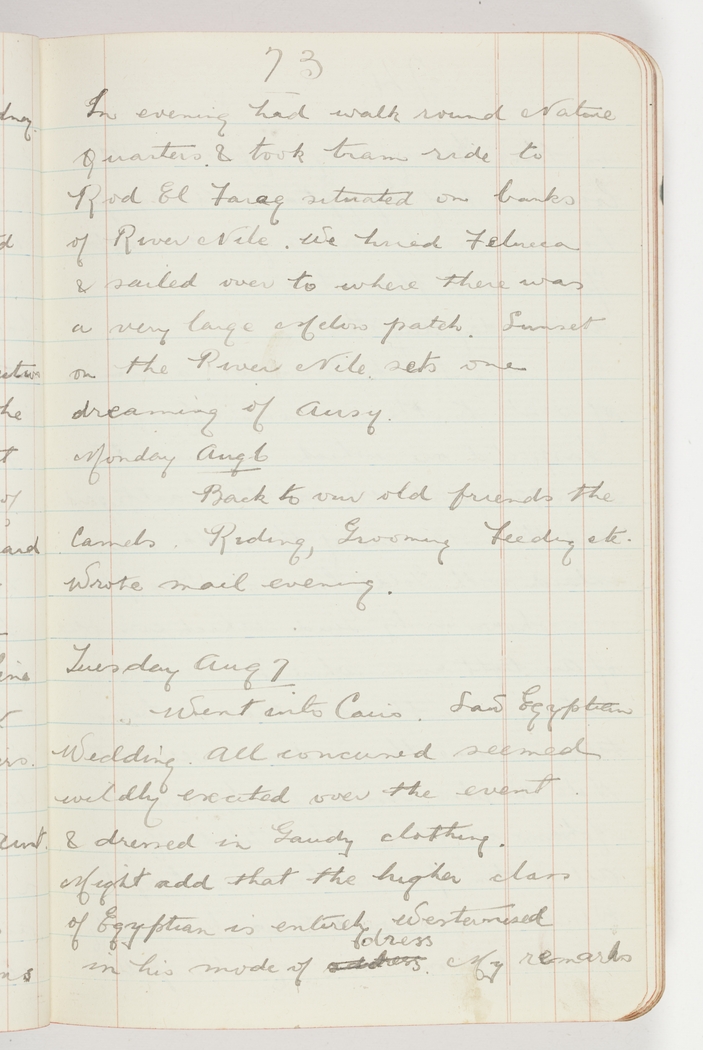 73
In evening had walk round Native
Quarters. & took tram ride to
Rod El Farag situated on banks
of River Nile. We hired Felucca
& sailed over to where there was
a very large Melon patch. Sunset
on the River Nile. sets one
dreaming of Aussy.
Monday Aug 6
Back to our old friends the
Camels. Riding, Grooming Feeding etc.
Wrote mail evening.
Tuesday Aug 7
Went into Cairo. Saw Egyptian
Wedding. All concurned seemed
wildly excited over the event.
& dressed in Gaudy clothing.
Might add that the higher class
of Egyptian is entirely Westernised
dress
in his mode of My remarks